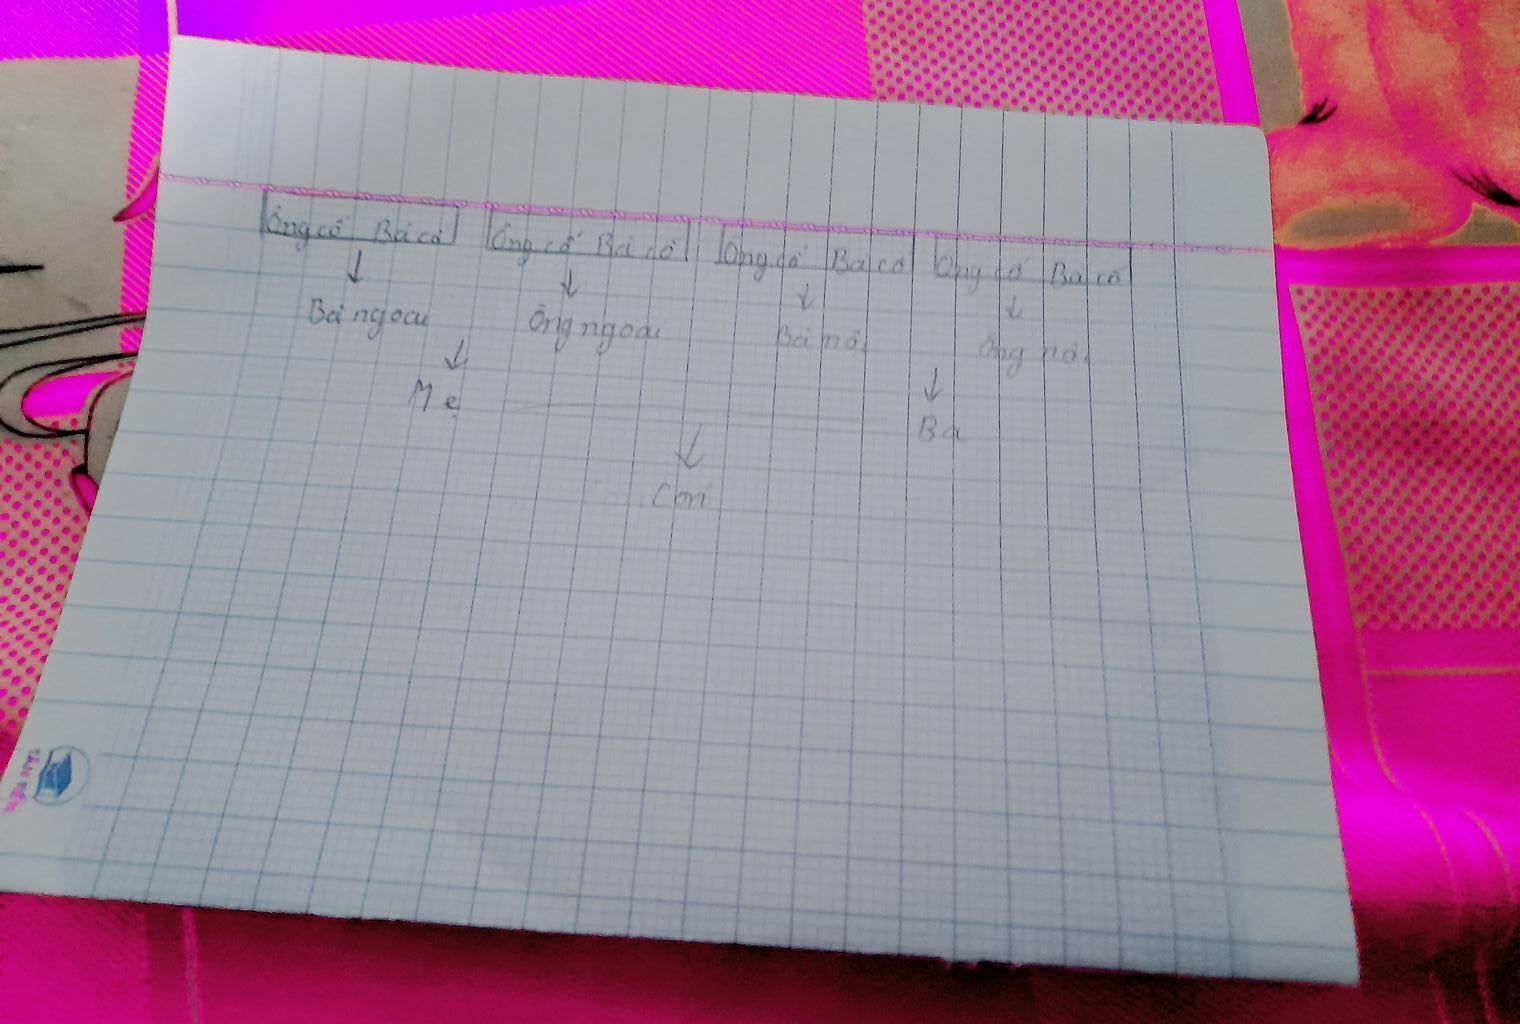 Ông cố Bà cố Ông cố Bà cố Ông cố Bà cố Ông cố Bà cố
Bà ngoại Ông ngoại Bà nội Ông nội
Mẹ Ba
Con